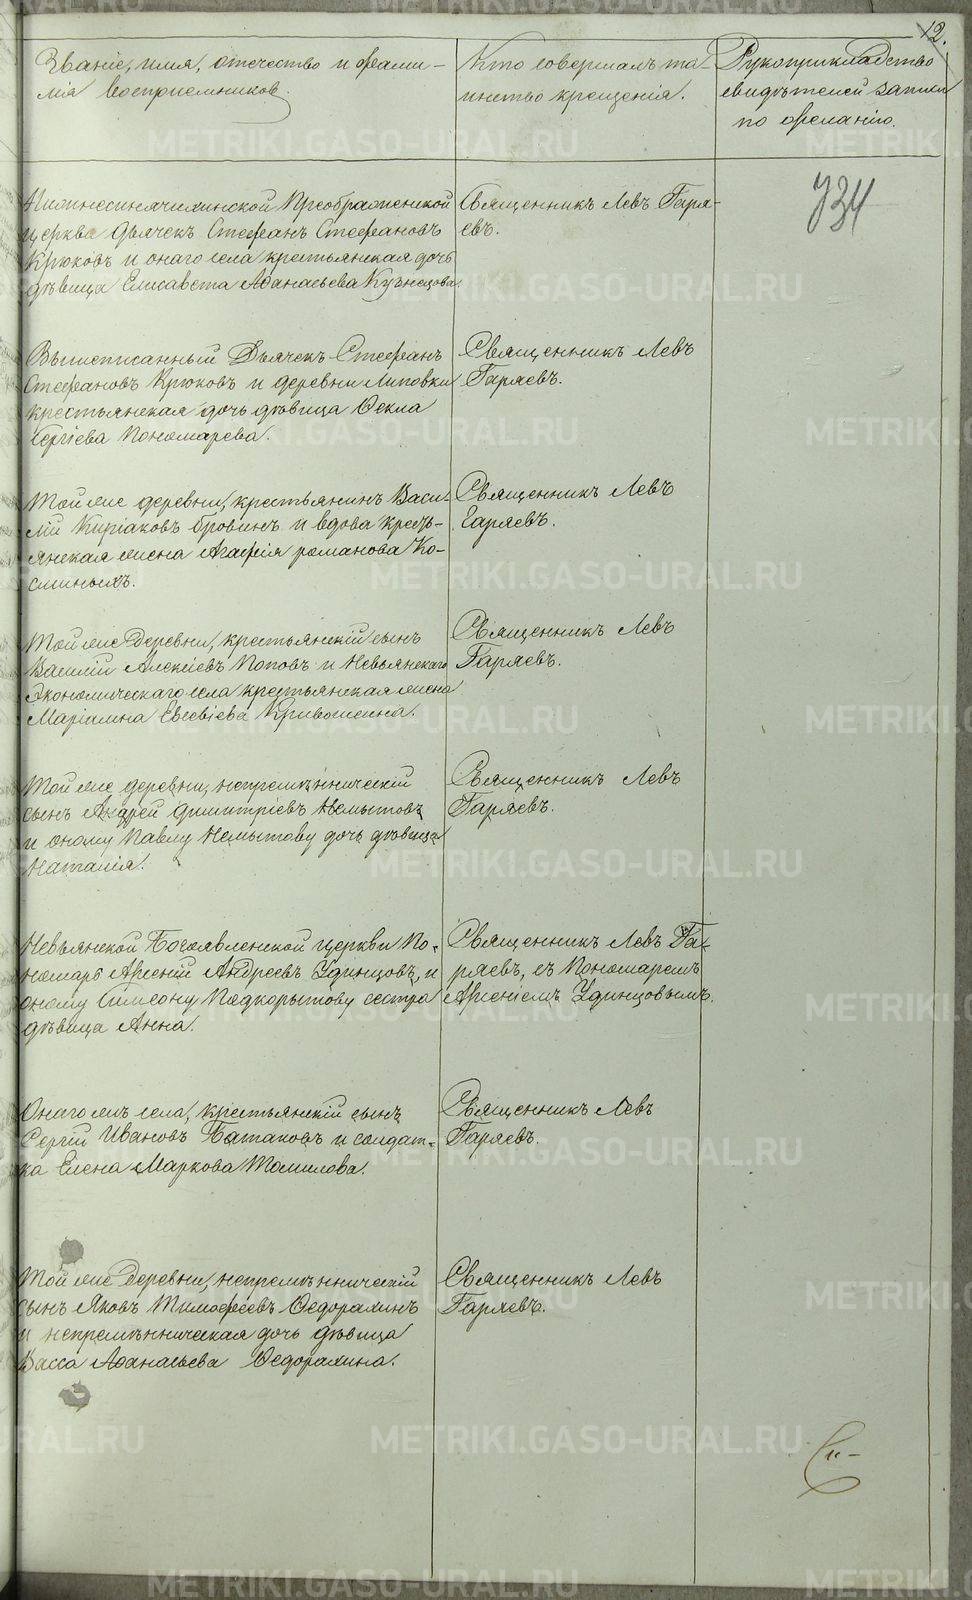 12.
Званіе, имя, отечество и фами-
лія воспріемниковъ.
Кто совершалъ та-
инство крещенія.
Рукоприкладство
свидѣтелей записи
по желанію.
734
Нижнесинячихинской Преображенской
церкви дьячекъ Стефанъ Стефановъ
Крюковъ и онаго села крестьянская дочь
дѣвица Елисавета Аѳанасьева Кузнецова.
Священникъ Левъ Гаря-
евъ.
Вышеписанный Дьячекъ Стефанъ
Стефановъ Крюковъ и деревни Липовки
крестьянская дочь дѣвица Ѳекла
Сергіева Пономарева.
Священникъ Левъ
Гаряевъ.
Той же деревни, крестьянинъ Васи-
лій Киріаковъ бровинъ и вдова кресть-
янская жена Агафія романова Ко-
сминыхъ.
Священникъ Левъ
Гаряевъ.
Той же Деревни, крестьянскій сынъ
Василій Алексіевъ Поповъ и Невьянскаго
Экономическаго села крестьянская жена
Маріамна Евсевіева Кривошеина.
Священникъ Левъ
Гаряевъ.
Той же деревни, непремѣнническій
сынъ Андрей Димитріевъ Немытовъ
и оному Павлу Немытову дочь дѣвица
Наталія.
Священникъ Левъ
Гаряевъ.
Невьянской Богоявленской церкви По-
номарь Арсеній Андреевъ Удинцовъ, и
оному Симеону Подкорытову сестра
дѣвица Анна.
Священникъ Левъ Га-
ряевъ, съ Пономаремъ
Арсеніемъ Удинцовымъ.
Онаго жъ села, крестьянскій сынъ
Сергій Ивановъ Батаковъ и солдат-
ка Елена Маркова Томилова.
Священникъ Левъ
Гаряевъ.
Той же Деревни, непремѣнническій
сынъ Яковъ Тимофеевъ Ѳедорахинъ
и непремѣнническая дочь дѣвица
Васса Аѳанасьева Ѳедорахина.
Священникъ Левъ
Гаряевъ.
METRIKI.GASO-URAL.RU